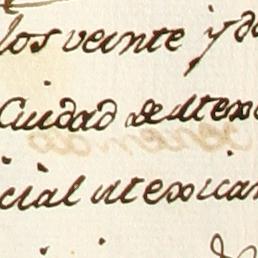 los veinte y do
Cuidad de Mexi
icial Mexican